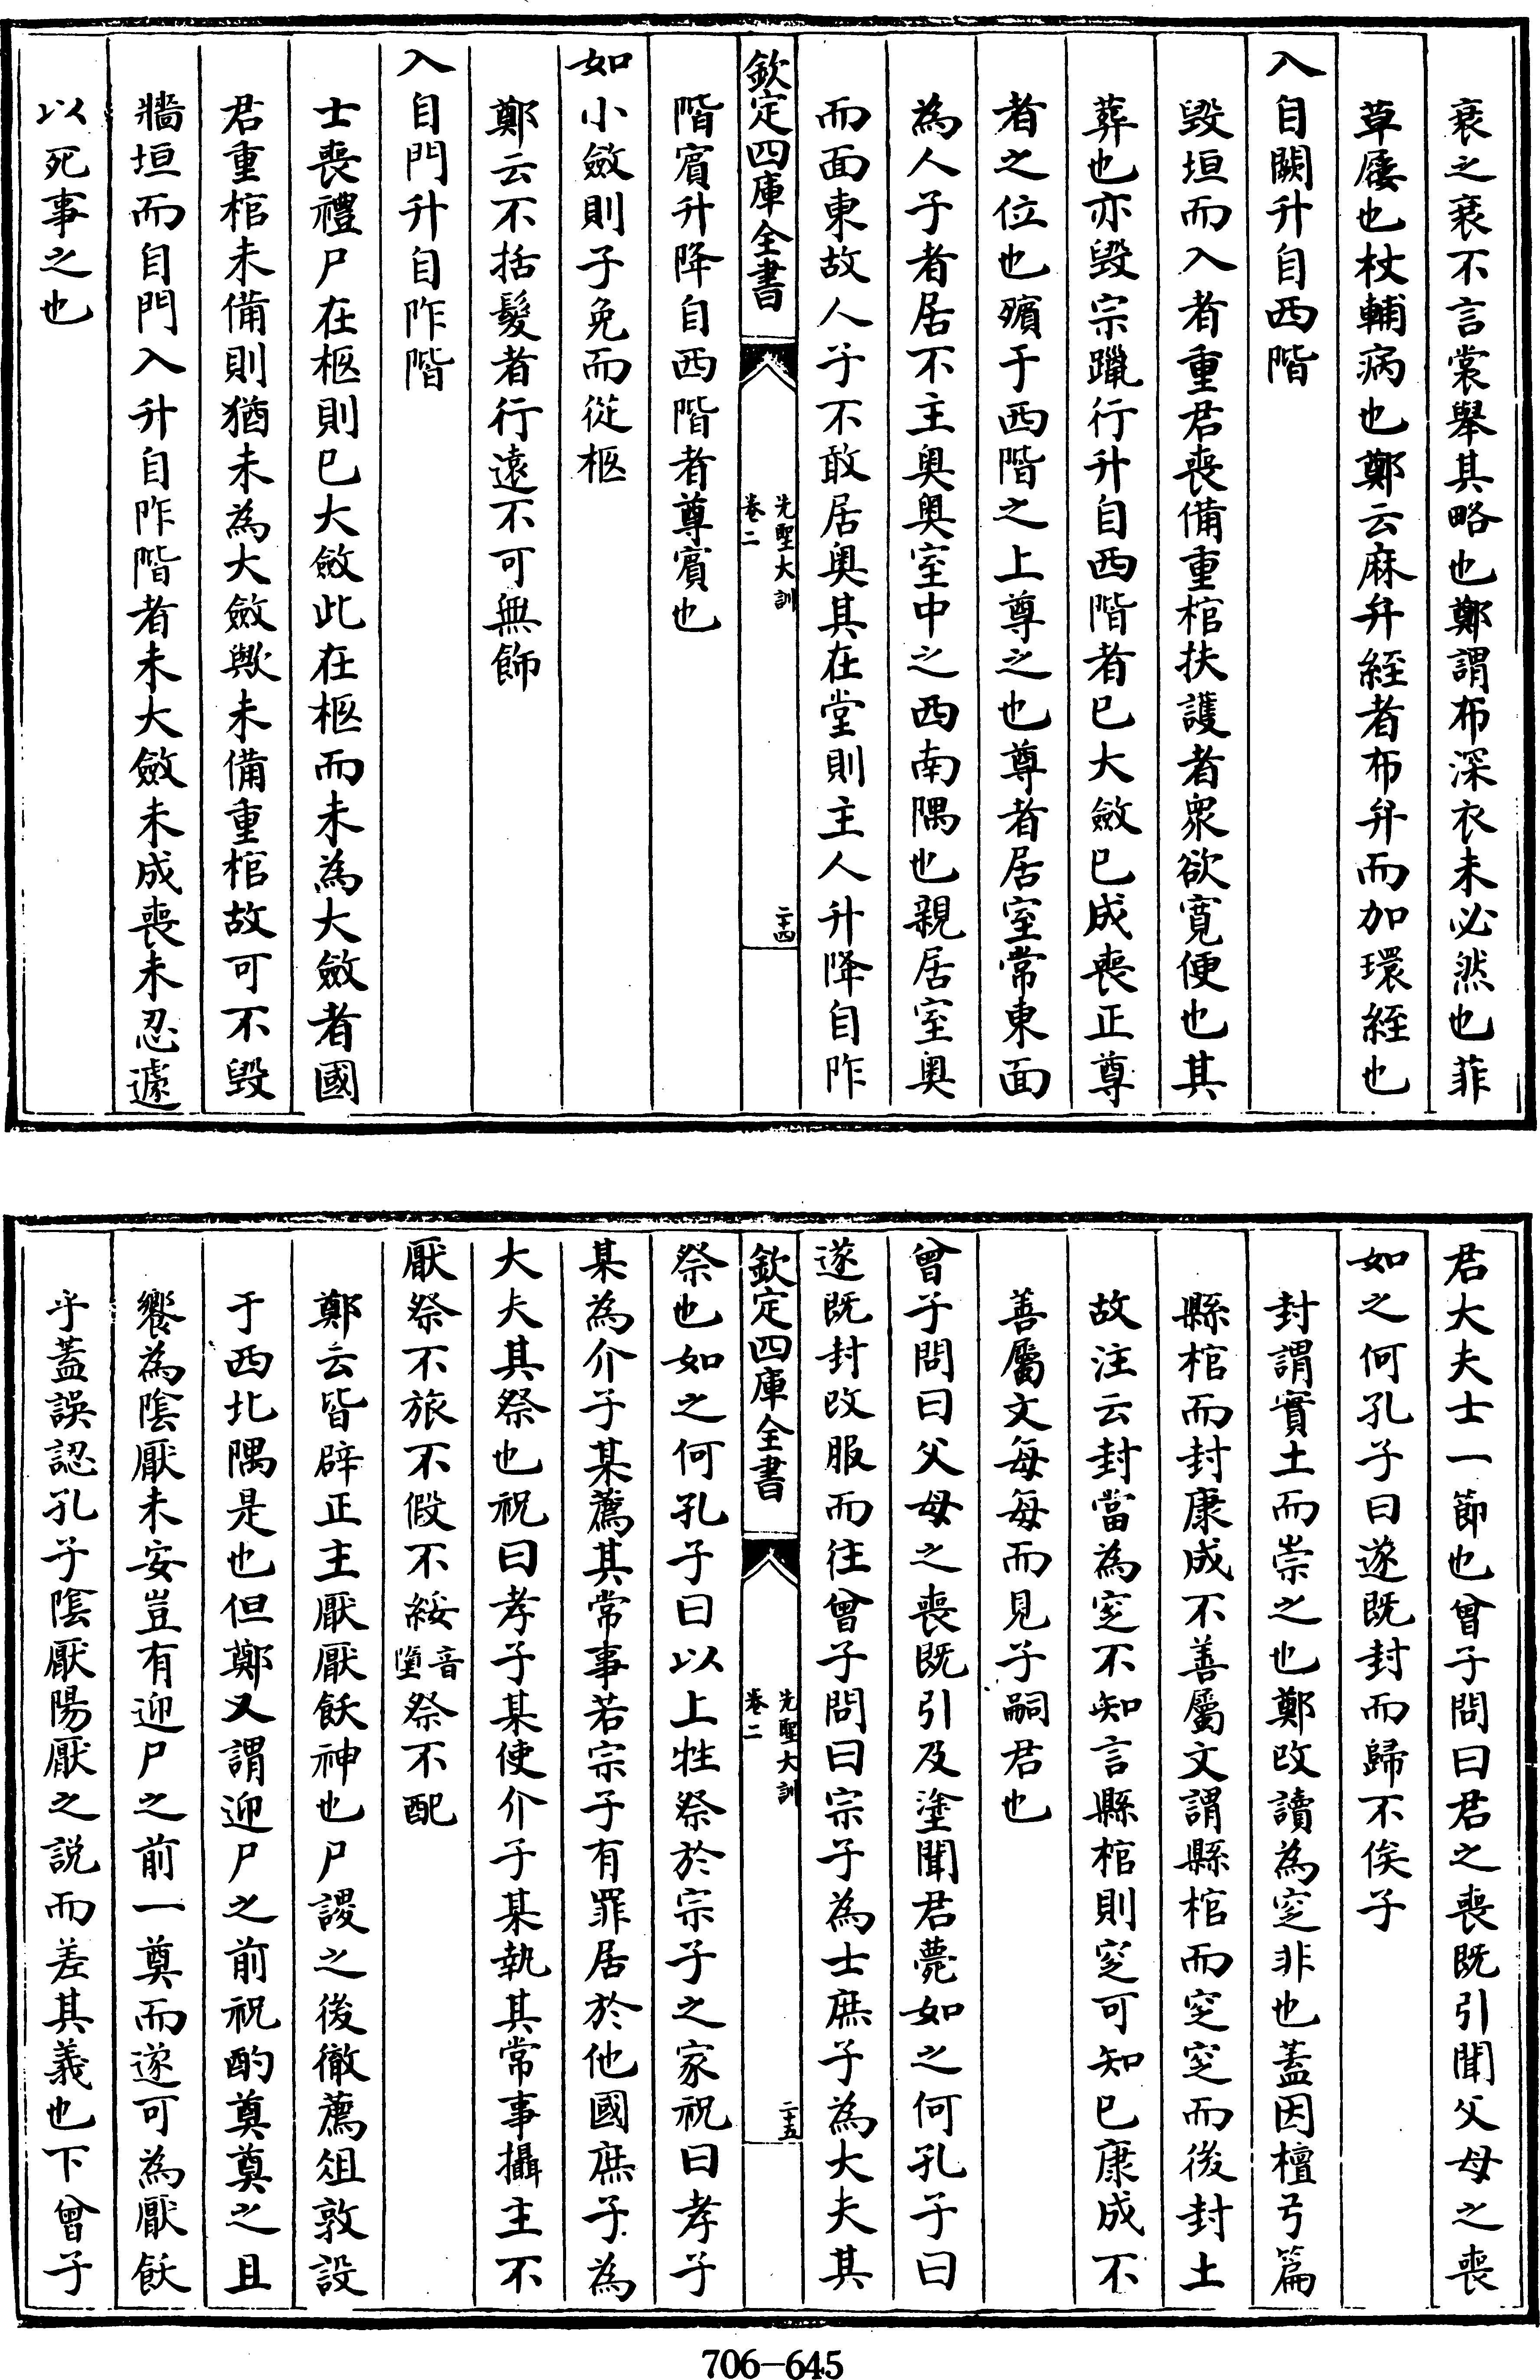 衰之衰不言裳舉其略也鄭謂布深衣未必然也菲
草屨也杖輔病也鄭云麻弁絰者布弁而加環絰也
入自闕升自西階
毀垣而入者重君喪備重棺扶護者衆欲寛便也其
葬也亦毀宗躐行升自西階者已大斂已成喪正尊
者之位也殯于西階之上尊之也尊者居室常東面
為人子者居不主奥奥室中之西南隅也親居室奥
而面東故人子不敢居奥其在堂則主人升降自阼
欽定四庫全書
先聖大訓
卷二
二十四
階賓升降自西階者尊賓也
如小斂則子免而從柩
鄭云不括髮者行遠不可無飾
入自門升自阼階
士喪禮尸在柩則已大斂此在柩而未為大斂者國
君重棺未備則猶未為大斂歟未備重棺故可不毀
牆垣而自門入升自阼階者未大斂未成喪未忍遽
以死事之也
君大夫士一節也曾子問曰君之喪既引聞父母之喪
如之何孔子曰遂既封而歸不俟子
封謂實土而崇之也鄭改讀為窆非也蓋因檀弓篇
縣棺而封康成不善屬文謂縣棺而窆窆而後封土
故注云封當為窆不知言縣棺則窆可知已康成不
善屬文每每而見子嗣君也
曾子問曰父母之喪既引及塗聞君薨如之何孔子曰
遂既封改服而往曾子問曰宗子為士庶子為大夫其
欽定四庫全書
先聖大訓
卷二
二十五
祭也如之何孔子曰以上牲祭於宗子之家祝曰孝子
某為介子某薦其常事若宗子有罪居於他國庶子為
大夫其祭也祝曰孝子某使介子某執其常事攝主不
厭祭不旅不假不綏音墮祭不配
鄭云皆辟正主厭厭飫神也尸謖之後徹薦俎敦設
于西北隅是也但鄭又謂迎尸之前祝酌奠奠之且
饗為陰厭未安豈有迎尸之前一奠而遂可為厭飫
乎蓋誤認孔子陰厭陽厭之説而差其義也下曾子
706-645